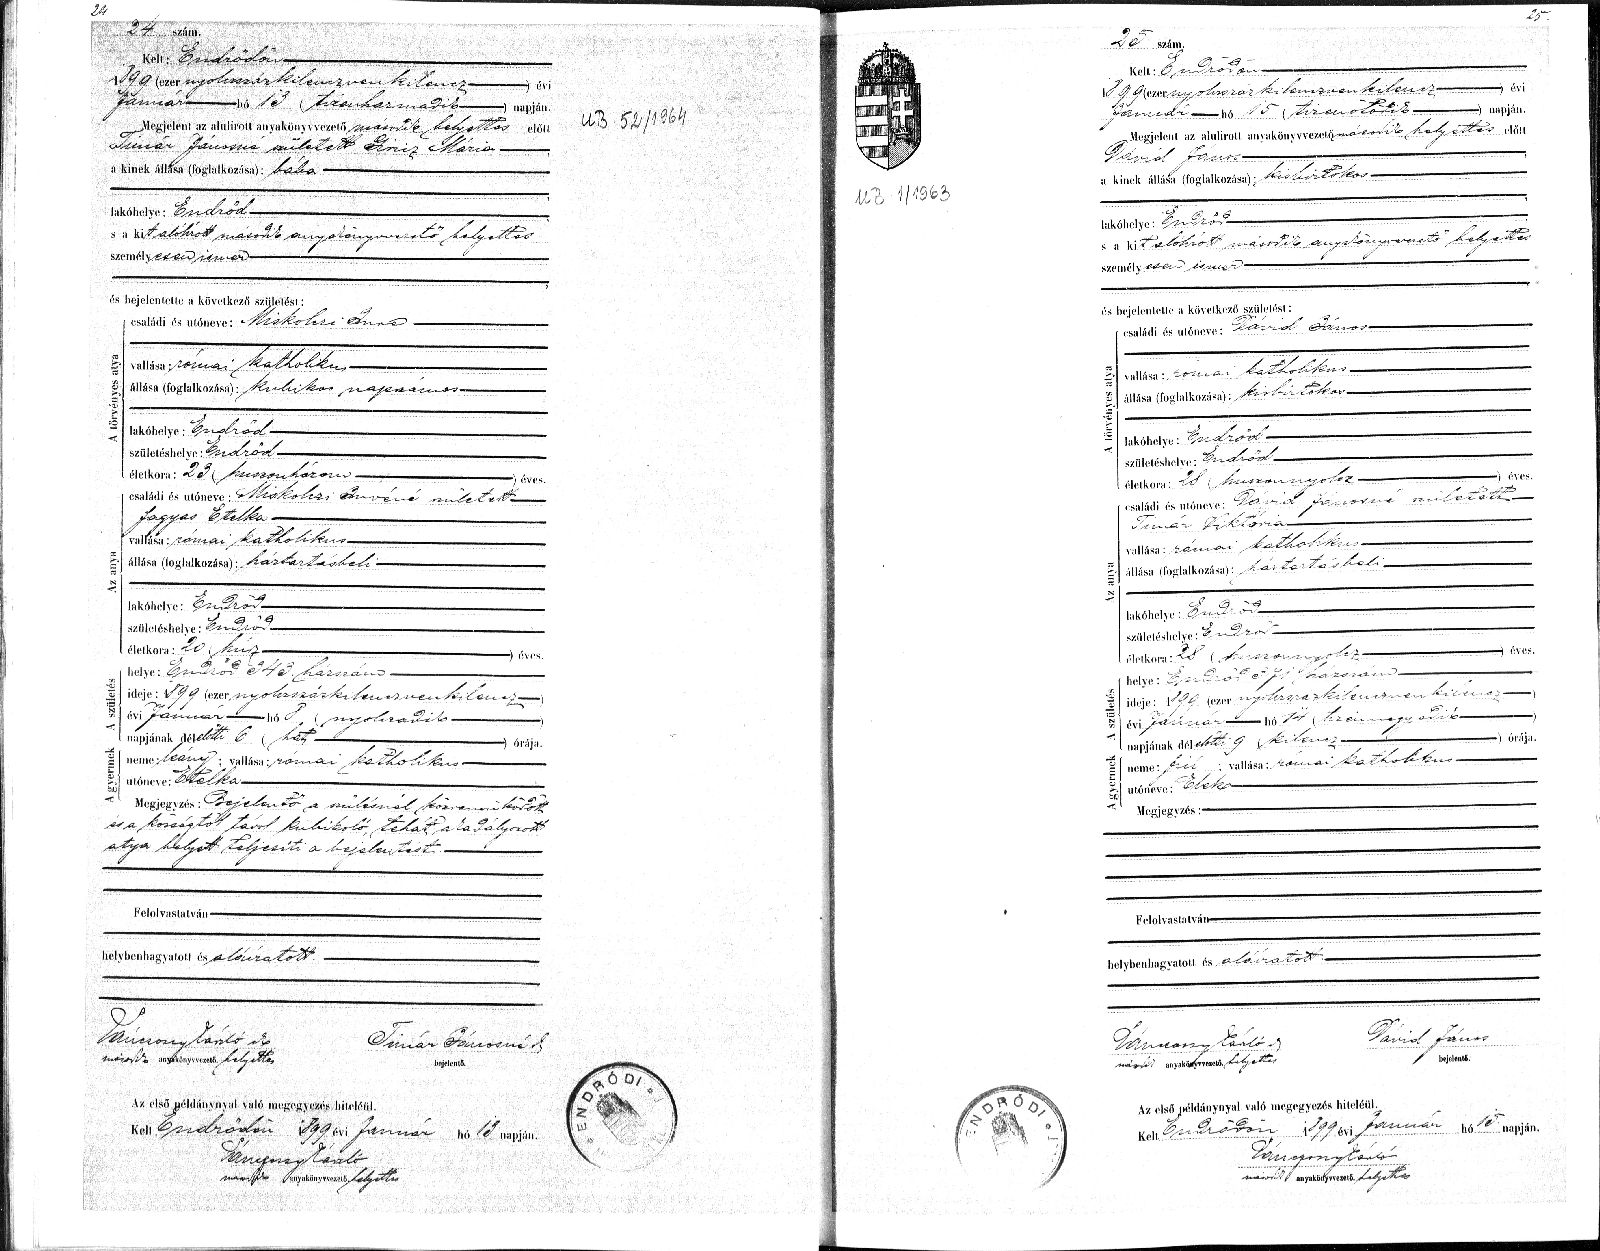 24
24 szám.
Kelt: Endrődön
1899 (ezer nyolczszázkilenczvenkilencz) évi
Január hó 13 (tizenharmadik) napján.
Megjelent az alulirott anyakönyvvezető második helyettes előtt
Timár Jánosné született Mária
a kinek állása (foglalkozása): bába
lakóhelye: Endrőd
s a kit alólirott második anyakönyvvezető helyettes
személyesen ismer
és bejelentette a következő születést:
A törvényes atya
családi és utóneve: Miskolczi Imre
vallása: római katholikus
állása (foglalkozása): kubikos napszámos
lakóhelye: Endrőd
születéshelye: Endrőd
életkora: 23 (huszonhárom) éves.
Az anya
családi és utóneve: Miskolczi Imréné született
Fagyas Etelka
vallása: római katholikus
állása (foglalkozása): háztartásbeli
lakóhelye: Endrőd
születéshelye: Endrőd
életkora: 20 (husz) éves.
A születés
helye: Endrőd 343 házszám
ideje: 1899 (ezer nyolczszázkilenczvenkilencz)
évi Január hó 8 (nyolczadik)
napjának délelőtti 6 (hat) órája.
A gyermek
neme: leány; vallása: római katholikus
utóneve: Etelka
Megjegyzés: Bejelentő a szülésnél közreműködött
és a községtől távol kubikoló, tehát akadályozott
atya helyett teljesíti a bejelentést.
Felolvastatván
helybenhagyatott és aláiratott.
Károly
második anyakönyvvezető helyettes
Timár Jánosné
bejelentő.
Az első példánynyal való megegyezés hiteléül.
Kelt Endrődön 1899 évi Január hó 13 napján.
Károly
második anyakönyvvezető helyettes
ENDRŐDI
UB 52/1964
25.
25 szám.
Kelt: Endrődön
1899 (ezer nyolczszázkilenczvenkilencz) évi
Január hó 15 (tizenötödik) napján.
Megjelent az alulirott anyakönyvvezető második helyettes előtt
Dávid János
a kinek állása (foglalkozása): kisbirtokos
lakóhelye: Endrőd
s a kit alólirott második anyakönyvvezető helyettes
személyesen ismer
és bejelentette a következő születést:
A törvényes atya
családi és utóneve: Dávid János
vallása: római katholikus
állása (foglalkozása): kisbirtokos
lakóhelye: Endrőd
születéshelye: Endrőd
életkora: 28 (huszonnyolcz) éves.
Az anya
családi és utóneve: Dávid Jánosné született
Timár Viktória
vallása: római katholikus
állása (foglalkozása): háztartásbeli
lakóhelye: Endrőd
születéshelye: Endrőd
életkora: 28 (huszonnyolcz) éves.
A születés
helye: Endrőd házszám
ideje: 1899 (ezer nyolczszázkilenczvenkilencz)
évi Január hó 14 (tizennegyedik)
napjának délelőtti 9 (kilencz) órája.
A gyermek
neme: fiú; vallása: római katholikus
utóneve: Elek
Megjegyzés:
Felolvastatván
helybenhagyatott és aláiratott
Károly
második anyakönyvvezető helyettes
Dávid János
bejelentő.
Az első példánynyal való megegyezés hiteléül.
Kelt Endrődön 1899 évi Január hó 15 napján.
Károly
második anyakönyvvezető helyettes
ENDRŐDI
UB 1/1963